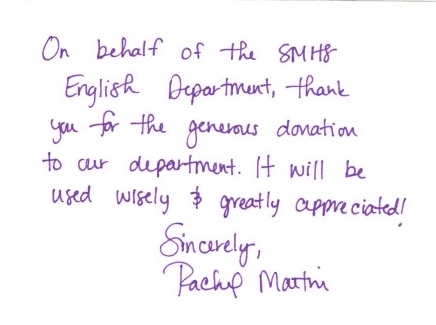 On behalf of the SMHS
English Department, thank
you for the generous donation
to our department. It will be
used wisely & greatly appreciated!
Sincerely,
Rachel Martin